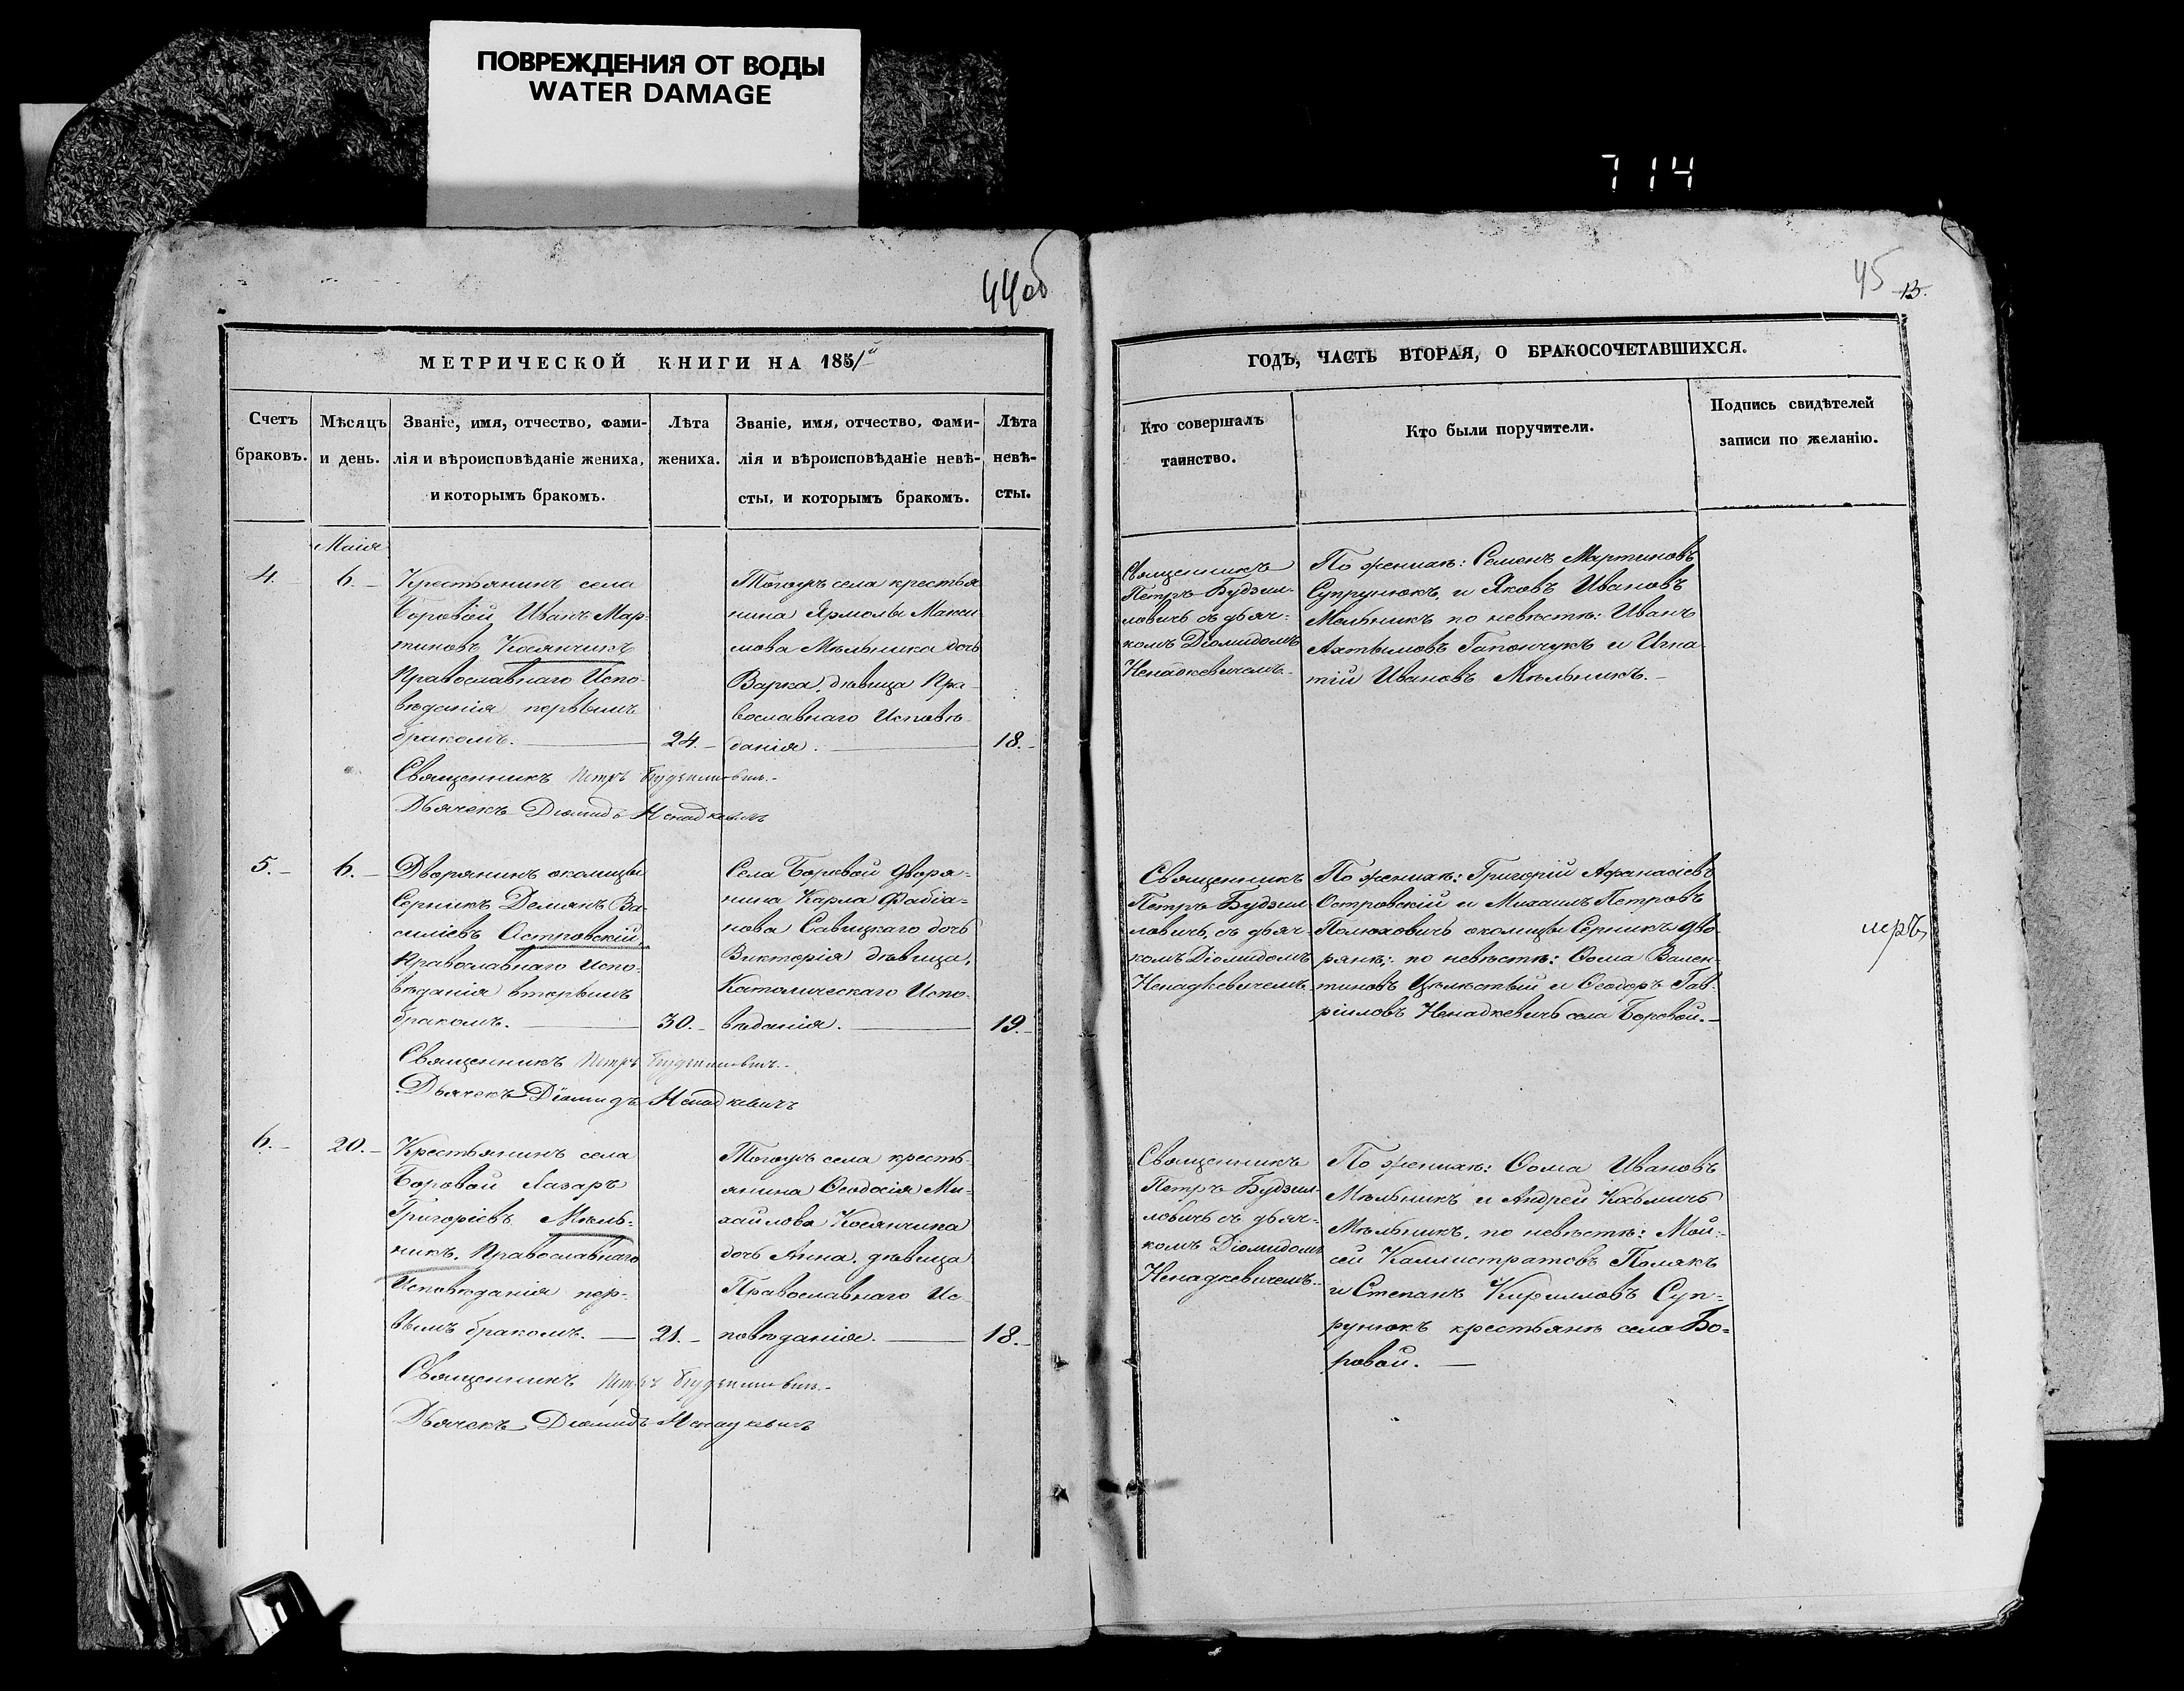 ПОВРЕЖДЕНИЯ ОТ ВОДЫ
WATER DAMAGE
714
44об
МЕТРИЧЕСКОЙ КНИГИ НА 1851й
Счетъ браковъ.
Мѣсяцъ и день.
Званіе, имя, отчество, фами-
лія и вѣроисповѣданіе жениха,
и которымъ бракомъ.
Лѣта
жениха.
Званіе, имя, отчество, фами-
лія и вѣроисповѣданіе невѣ-
сты, и которымъ бракомъ.
Лѣта
невѣ-
сты.
Маія
4.
6.
Крестьянинъ села
Боровой Иванъ Мар-
тиновъ Косянчикъ
Православнаго Испо-
вѣданія первымъ
бракомъ.
24.
Тогожъ села крестья
нина Ярмолы Макси
мова Мѣльника дочь
Варка, дѣвица Пра-
вославнаго Исповѣ-
данія.
18.
Священникъ Петръ Будзиловичъ.
Дьячекъ Діомидъ Ненадкевичъ
5.
6.
Дворянинъ околицы
Серникъ Демянъ Ва-
силіевъ Островскій,
Православнаго Испо-
вѣданія вторымъ
бракомъ.
30.
Села Боровой дворя-
нина Карла Фабіа-
нова Савицкаго дочь
Викторія дѣвица,
Католическаго Испо-
вѣданія.
19.
Священникъ Петръ Будзиловичъ.
Дьячекъ Діомидъ Ненадкевичъ
6.
20.
Крестьянинъ села
Боровой Лазаръ
Григоріевъ Мѣль-
никъ. Православнаго
Исповѣданія пер-
вымъ бракомъ.
21.
Тогожъ села кресть-
янина Ѳеодосія Ми-
хайлова Косянчика
дочь Анна, дѣвица
Православнаго Ис-
повѣданія.
18.
Священникъ Петръ Будзиловичъ.
Дьячекъ Діомидъ Ненадкевичъ
45
13.
ГОДЪ, ЧАСТЬ ВТОРАЯ, О БРАКОСОЧЕТАВШИХСЯ.
Кто совершалъ
таинство.
Кто были поручители.
Подпись свидѣтелей
записи по желанію.
Священникъ
Петръ Будзил-
ловичъ съ дьяч-
комъ Діомидомъ
Ненадкевичемъ.
По женихѣ: Семенъ Мартиновъ
Супрунюкъ, и Яковъ Ивановъ
Мельникъ по невѣстѣ: Иванъ
Ахтымовъ Гапончукъ и Игна
тій Ивановъ Мѣльникъ.
Священникъ
Петръ Будзил
ловичъ, съ дьяч-
комъ Діомидомъ
Ненадкевичемъ.
По женихѣ: Григорій Афанасіевъ
Островскій и Михаилъ Петровъ
Полюховичъ околицы Серникъ дво
ряне; по невѣстѣ: Ѳома Вален-
тиновъ и Ѳеодоръ Гав-
ріиловъ Ненадкевичъ села Боровой.
Священникъ
Петръ Будзил-
ловичъ съ дьяч-
комъ Діомидомъ
Ненадкевичемъ.
По женихѣ: Ѳома Ивановъ
Мѣльникъ и Андрей Козьмичъ
Мѣльникъ, по невѣстѣ: Мой-
сей Каллистратовъ Полякъ
и Степанъ Кирилловъ Суп-
рунюкъ крестьяне села Бо-
ровой.
іерѣ